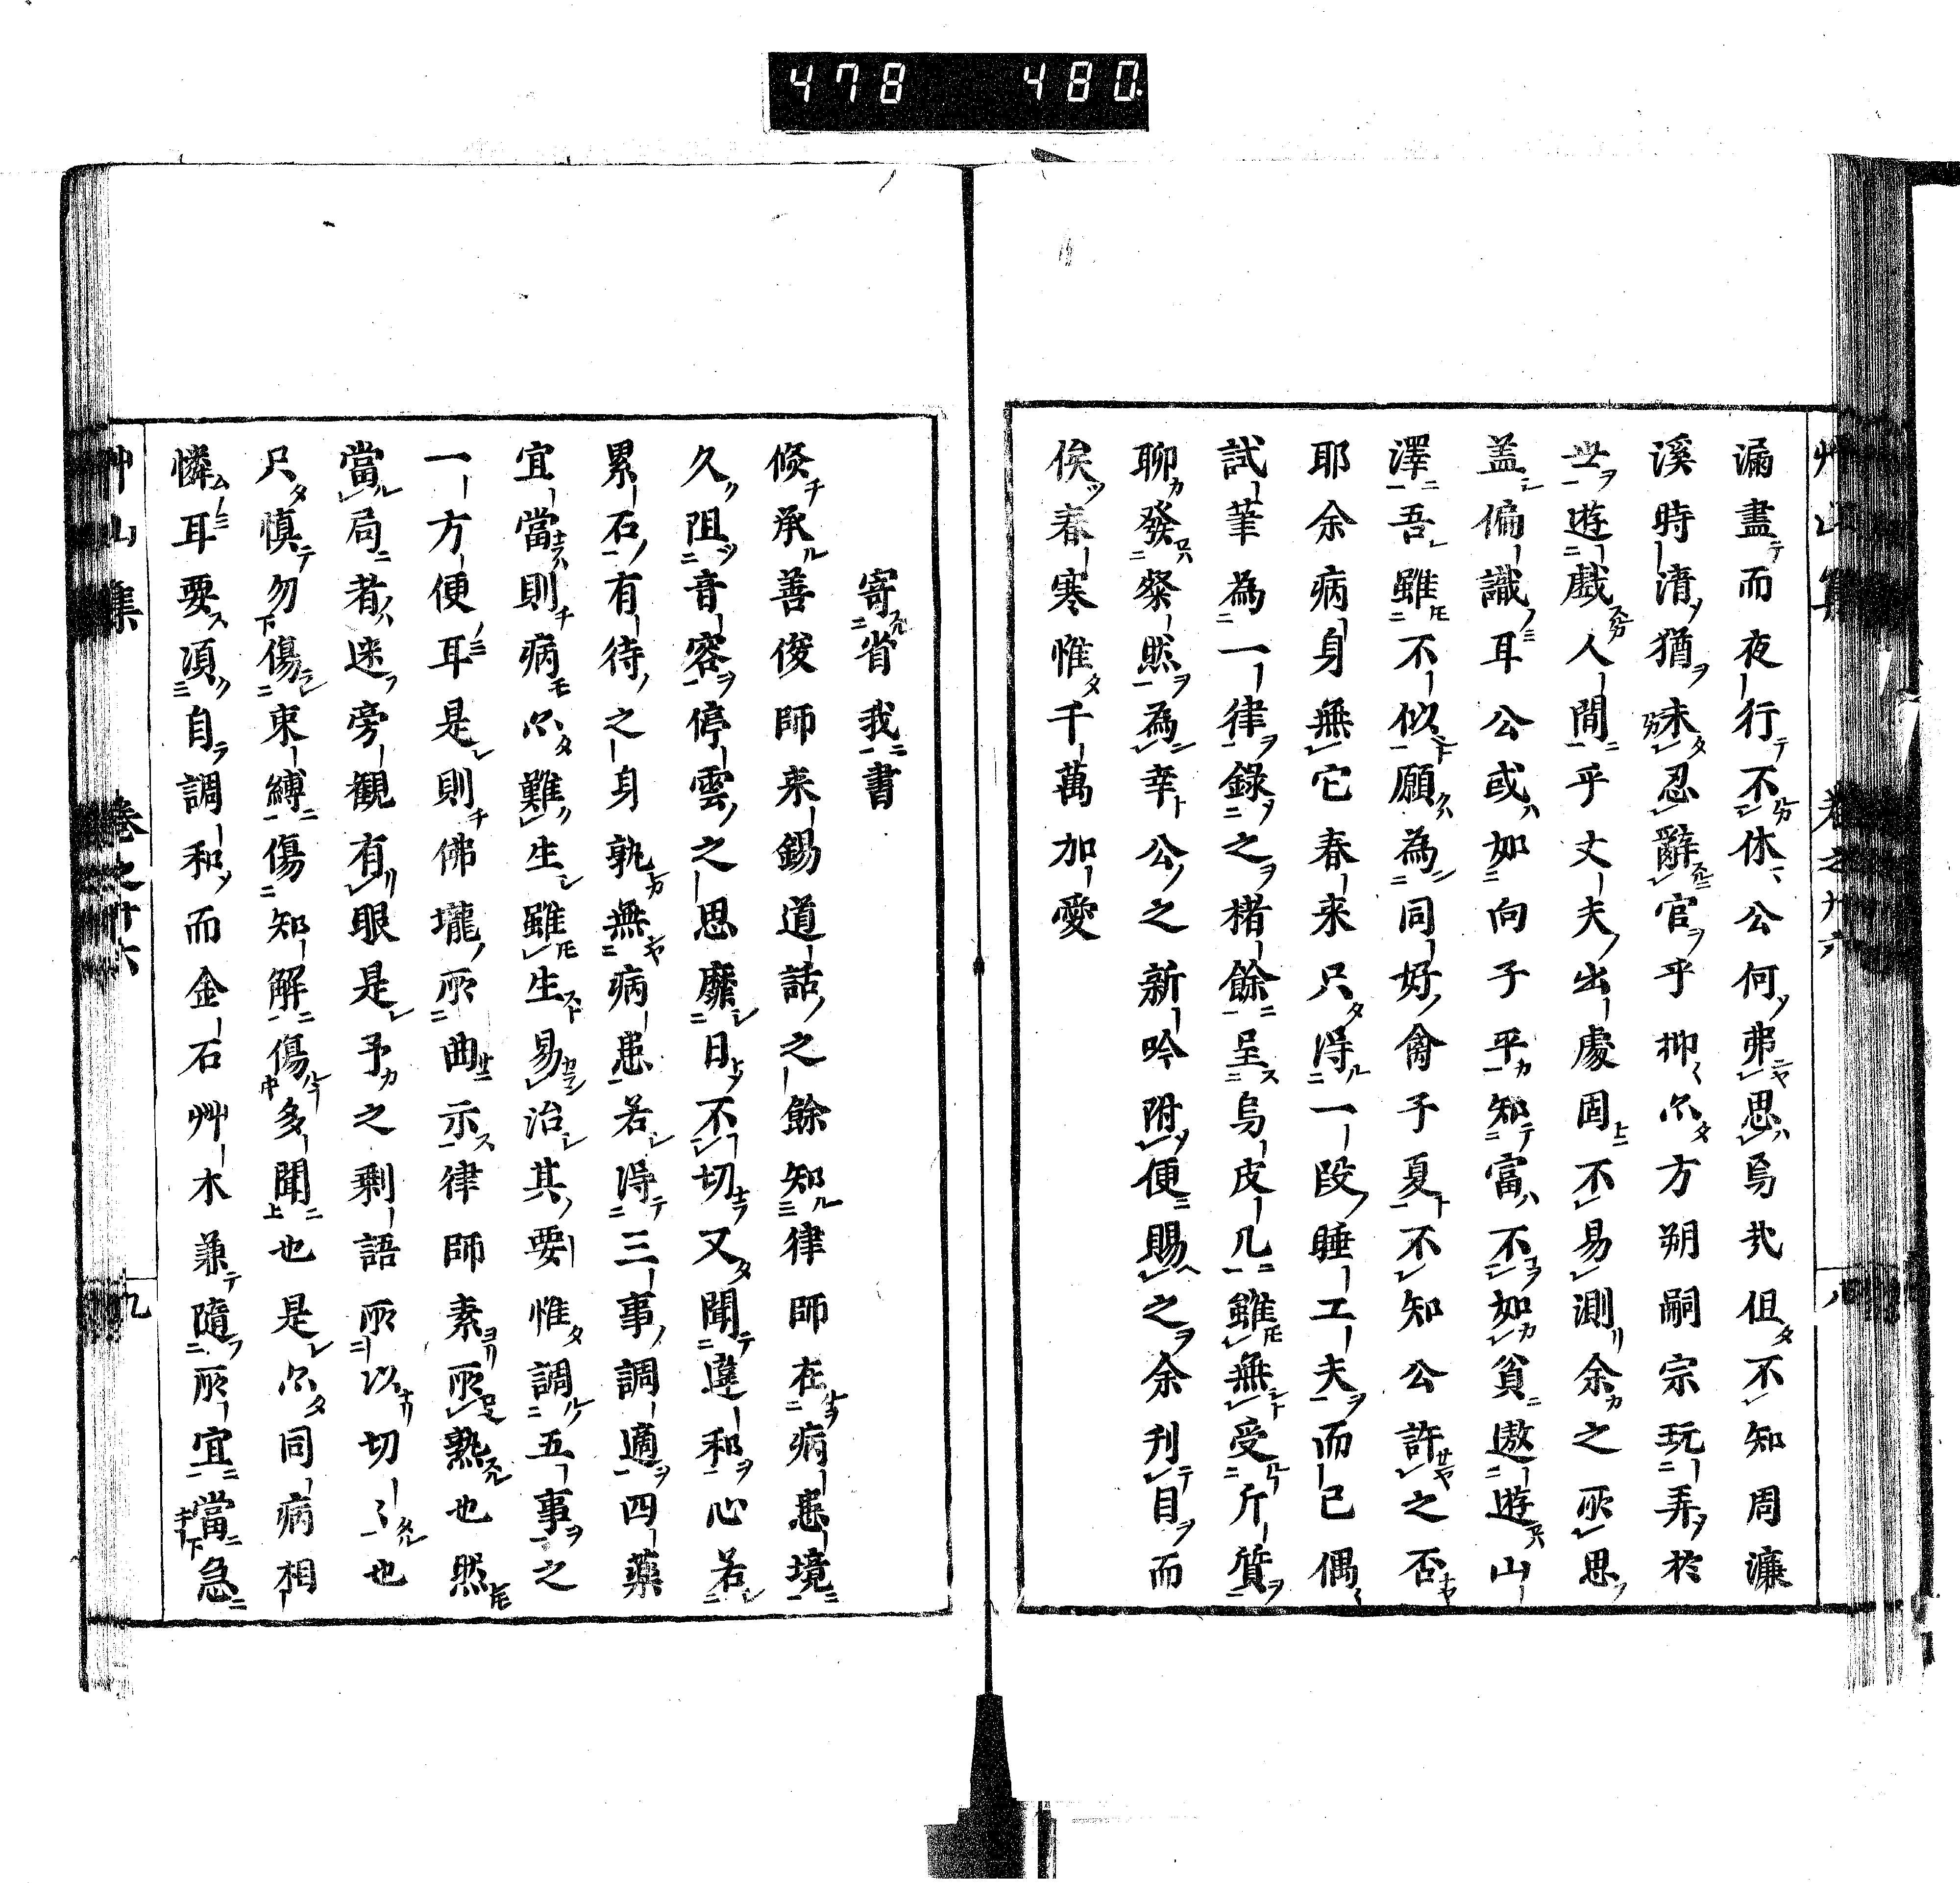 478 480
艸山集 卷之廿六 八
漏盡而夜行不休公何弗思焉哉但不知周濂
溪時淸猶未忍辭官乎抑尒方朔嗣宗玩弄於
世遊戯人間乎丈夫出處固不易測余之所思
盖偏識耳公或如向子平知富不如貧遨遊山
澤吾雖不似願為同好禽子夏不知公許之否
耶余病身無它春来只得一段睡工夫而已偶
試筆為一律錄之楮餘呈烏皮几雖無受斤質
聊發粲然為幸公之新吟附便賜之余刋目而
俟春寒惟千萬加愛
寄省我書
倐承善俊師来錫道話之餘知律師在病患境
久阻音容停雲之思靡日不切又聞違和心若
累石有待之身孰無病患若得三事調適四藥
宜當則病尒難生雖生易治其要惟調五事之
一方便耳是則佛壠所曲示律師素所熟也然
當局者迷旁観有眼是予之剰語所以切々也
只慎勿傷束縛傷知解傷多聞也是尒同病相
憐耳要須自調和而金石艸木兼隨所宜當急
艸山集 卷之廿六 九